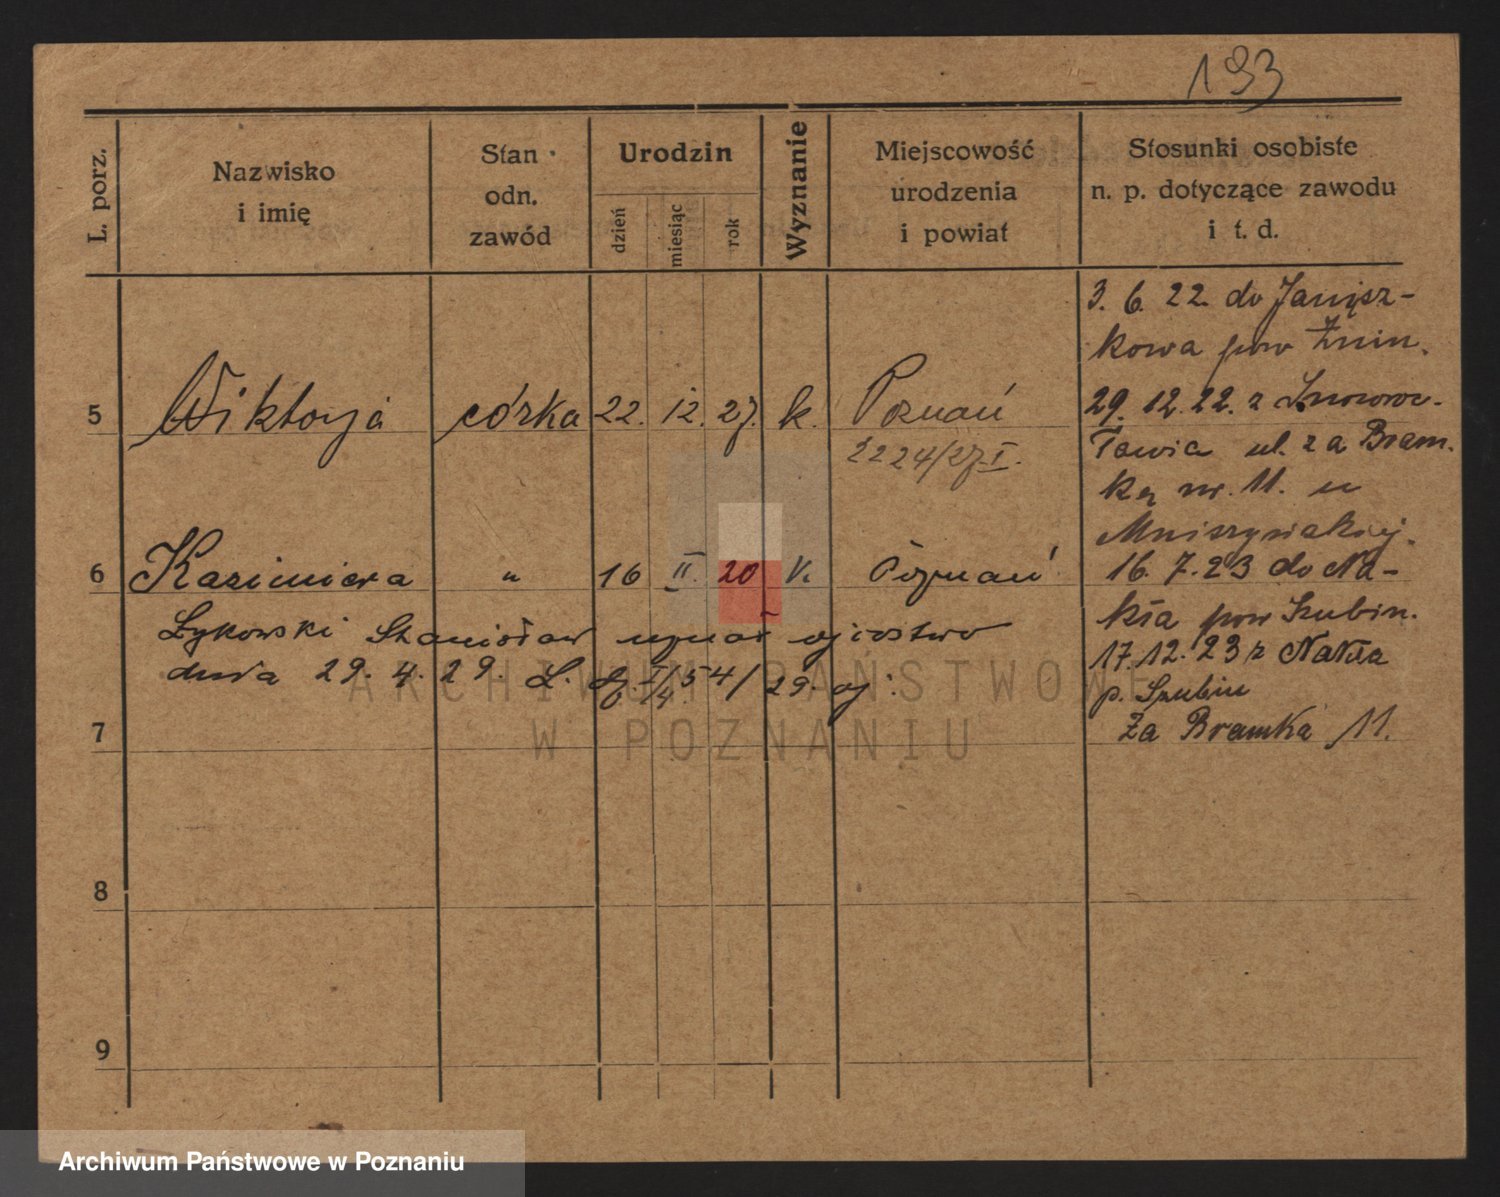 193
L. porz.
Nazwisko
i imię
Stan
odn.
zawód
Urodzin
dzień
miesiąc
rok
Wyznanie
Miejscowość
urodzenia
i powiat
Stosunki osobiste
n. p. dotyczące zawodu
i t. d.
3. 6. 22. do Janisz-
kowa pow Żnin.
5 Wiktorja córka 22. 12. 27. k. Poznań
2224/27 I.
29. 12. 22. z Inowroc-
ławia ul. za Bram-
ką nr. 11. u
6 Kazimiera " 16 II. 20 k. Poznań
16. 7. 23 do Na-
kła pow Szubin.
17. 12. 23 z Nakła
p. Szubin
Za Bramką 11.
Łykowski Stanisław uznał ojcostwo
dnia 29. 4. 29. L. dz. 54/29.
7
8
9
ARCHIWUM PAŃSTWOWE
W POZNANIU
Archiwum Państwowe w Poznaniu